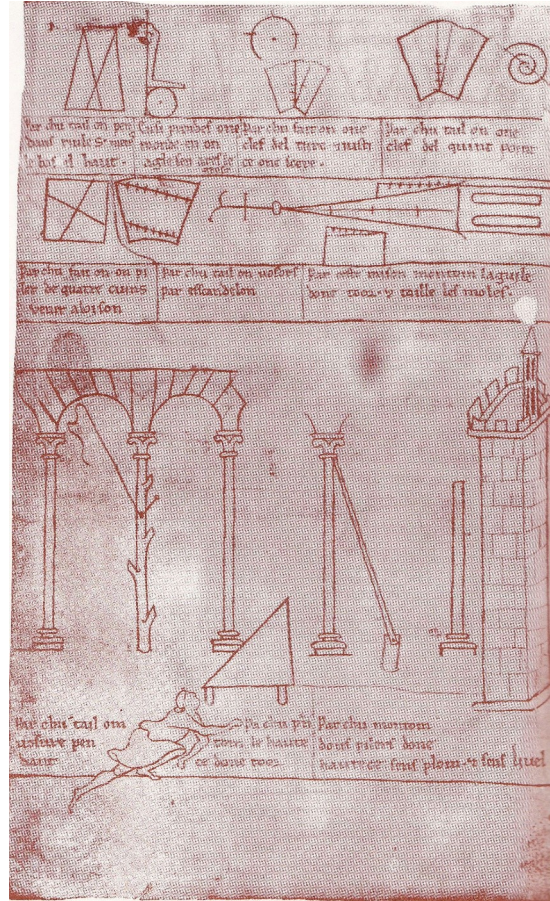 Par chu tail on pen
dans
le bas el haut.
one
monde en on
agle sen
Par chu fait on one
clef del
ce one scere.
Par chu tail on one
clef del quint point
Par chu fait on on pi
ler de quatre cuins
venir aloison
Par chu tail on vosors
par esscandelon
Par ceste raison montom laguile
done toor. & taille les moles.
Par chu tail om
vosure pen
dant
Pa chu prn
tom le haute
ce done toor
Par chu montom
dous pilers done
hautece sens plom. & sens liuel